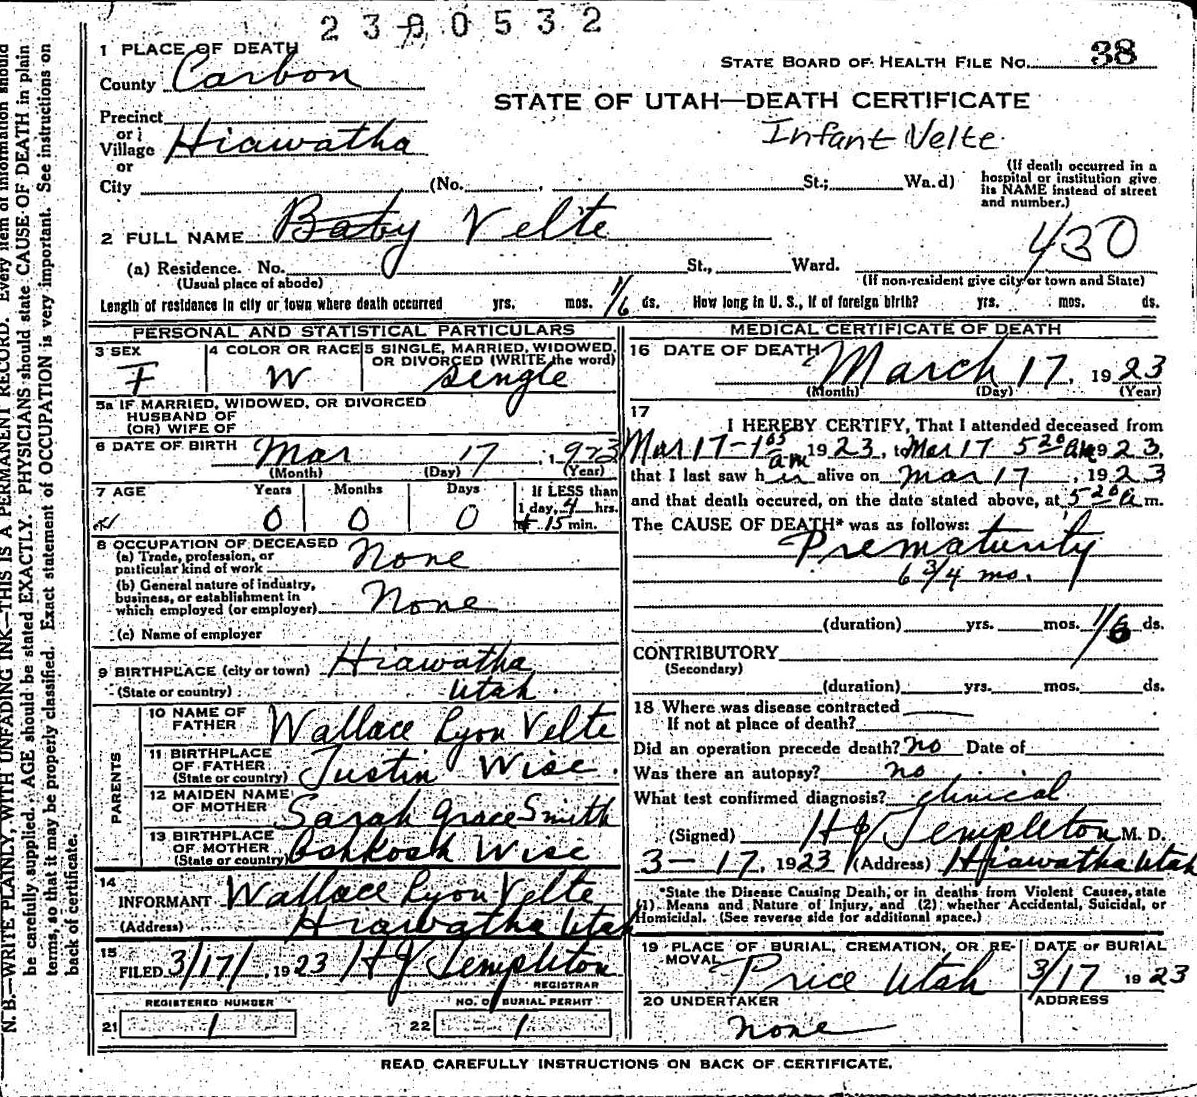 2 3 0 0 5 3 2
38
STATE BOARD OF HEALTH FILE NO.
STATE OF UTAH—DEATH CERTIFICATE
Infant Velte
1 PLACE OF DEATH
County Carbon
Precinct
or
Village Hiawatha
or
City (No. , St.; Wa.d)
(If death occurred in a
hospital or institution give
its NAME instead of street
and number.)
2 FULL NAME Baby Velte
430
(a) Residence. No. St., Ward.
(Usual place of abode) (If non-resident give city or town and State)
Length of residence in city or town where death occurred yrs. mos. 1/6 ds. How long in U. S., if of foreign birth? yrs. mos. ds.
PERSONAL AND STATISTICAL PARTICULARS
3 SEX
F
4 COLOR OR RACE
W
5 SINGLE, MARRIED, WIDOWED,
OR DIVORCED (WRITE the word)
single
5a IF MARRIED, WIDOWED, OR DIVORCED
HUSBAND OF
(OR) WIFE OF
6 DATE OF BIRTH Mar 17 1923
(Month) (Day) (Year)
7 AGE Years Months Days If LESS than
1 day, 4 hrs.
0 0 0 15 min.
8 OCCUPATION OF DECEASED
(a) Trade, profession, or
particular kind of work None
(b) General nature of industry,
business, or establishment in
which employed (or employer) None
(c) Name of employer
9 BIRTHPLACE (city or town) Hiawatha
(State or country) Utah
PARENTS
10 NAME OF
FATHER Wallace Lyon Velte
11 BIRTHPLACE
OF FATHER
(State or country) Justin Wisc.
12 MAIDEN NAME
OF MOTHER Sarah Grace Smith
13 BIRTHPLACE
OF MOTHER
(State or country) Oshkosh Wisc
14
INFORMANT Wallace Lyon Velte
(Address) Hiawatha Utah
15
FILED 3/17/ 1923 HJ Templeton
REGISTRAR
REGISTERED NUMBER
21 1
NO. OF BURIAL PERMIT
22 1
MEDICAL CERTIFICATE OF DEATH
16 DATE OF DEATH March 17, 1923
(Month) (Day) (Year)
17
I HEREBY CERTIFY, That I attended deceased from
Mar 17-1 05 am 1923, to Mar 17 5 20 am 1923,
that I last saw her alive on Mar 17, 1923
and that death occured, on the date stated above, at 5 20 a m.
The CAUSE OF DEATH* was as follows:
Prematurity
6 3/4 mo.
(duration) yrs. mos. 1/6 ds.
CONTRIBUTORY
(Secondary)
(duration) yrs. mos. ds.
18 Where was disease contracted
If not at place of death?
Did an operation precede death? no Date of
Was there an autopsy? no
What test confirmed diagnosis? clinical
(Signed) HJ Templeton M. D.
3-17, 1923 (Address) Hiawatha Utah
*State the Disease Causing Death, or in deaths from Violent Causes, state
(1) Means and Nature of Injury, and (2) whether Accidental, Suicidal, or
Homicidal. (See reverse side for additional space.)
19 PLACE OF BURIAL, CREMATION, OR RE-
MOVAL Price Utah
DATE OF BURIAL
3/17 1923
20 UNDERTAKER
none
ADDRESS
READ CAREFULLY INSTRUCTIONS ON BACK OF CERTIFICATE.
N. B.—WRITE PLAINLY, WITH UNFADING INK—THIS IS A PERMANENT RECORD. Every item of information should
be carefully supplied. AGE should be stated EXACTLY. PHYSICIANS should state CAUSE OF DEATH in plain
terms, so that it may be properly classified. Exact statement of OCCUPATION is very important. See instructions on
back of certificate.